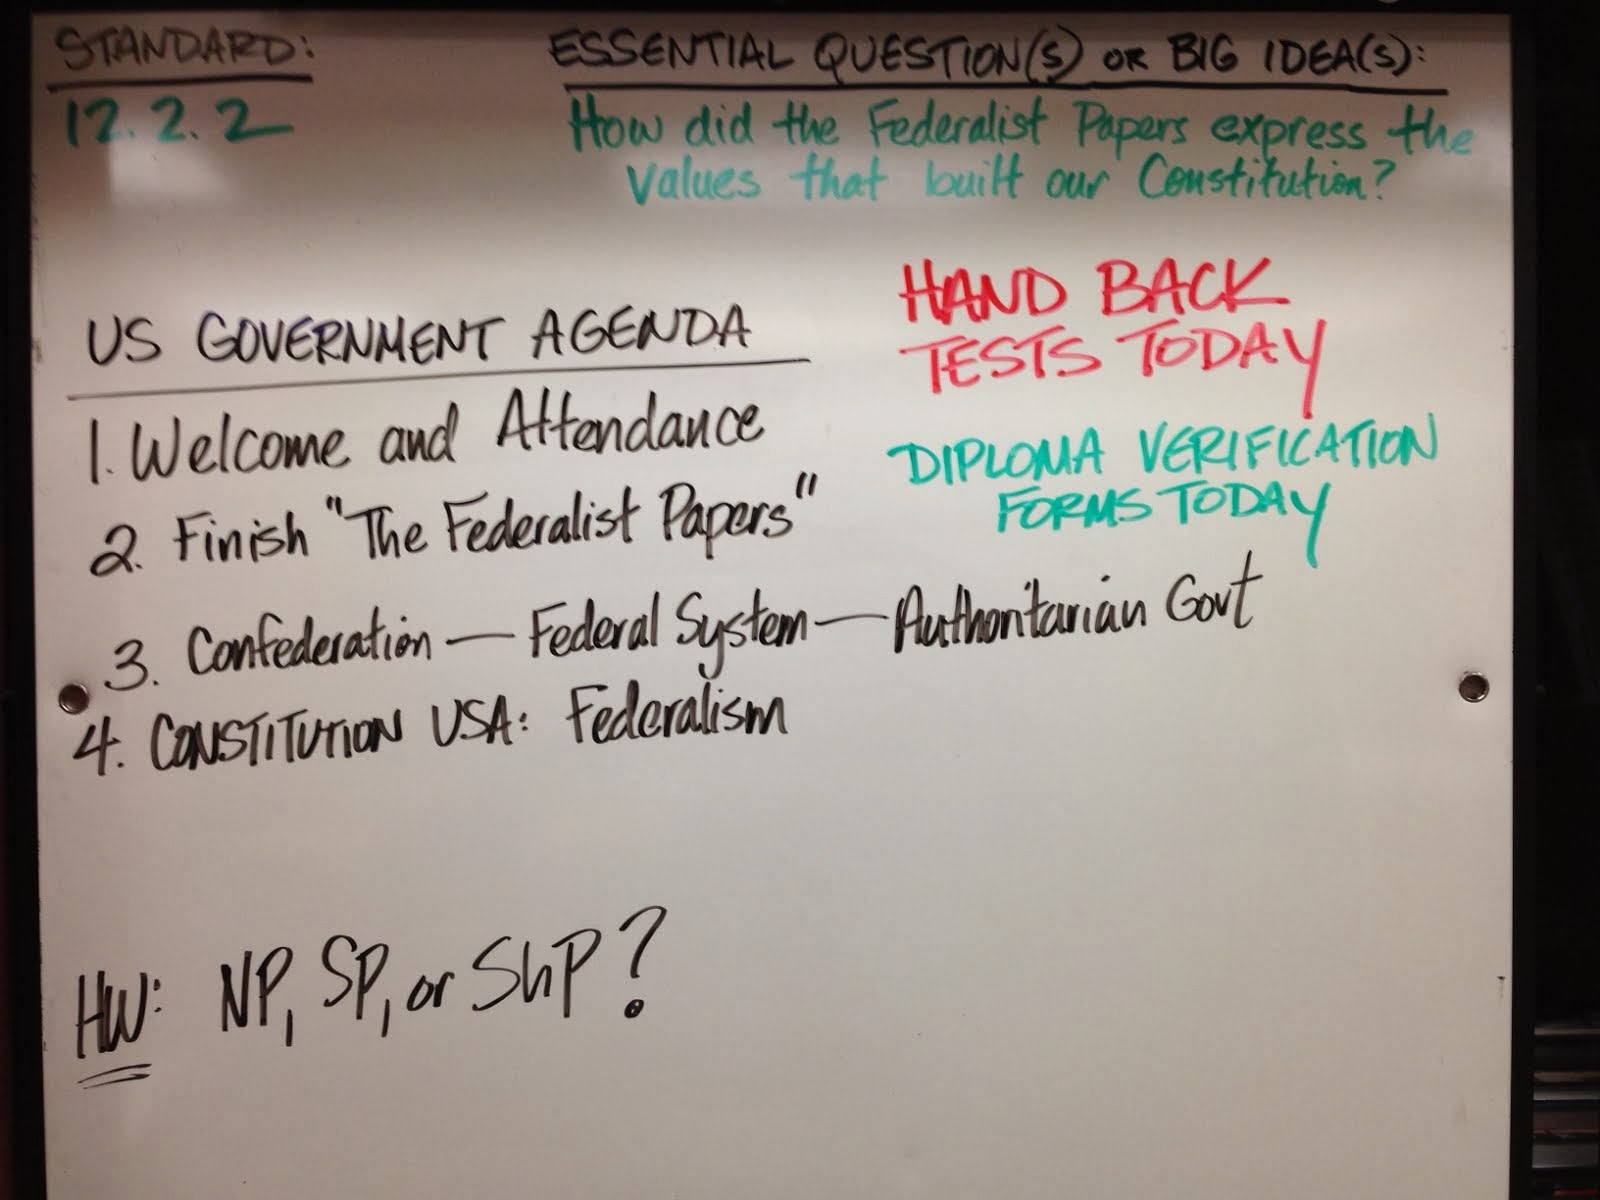 STANDARD:
12.2.2
ESSENTIAL QUESTION(S) OR BIG IDEA(S):
How did the Federalist Papers express the
values that built our Constitution?
HAND BACK
TESTS TODAY
DIPLOMA VERIFICATION
FORMS TODAY
US GOVERNMENT AGENDA
1. Welcome and Attendance
2. Finish "The Federalist Papers"
3. Confederation — Federal System — Authoritarian Govt
4. CONSTITUTION USA: Federalism
HW: NP, SP, or ShP?